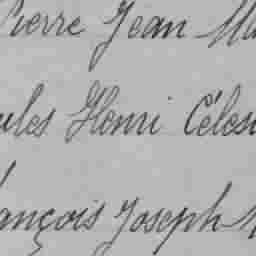 Pierre Jean
ules Henri Céles
ançois Joseph